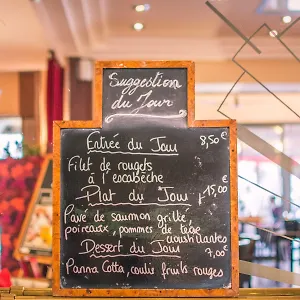 Suggestion
du Jour
Entrée du Jour 8,50 €
Filet de rougets
à l'escabèche
Plat du Jour 15,00 €
Pavé de saumon grillé,
poireaux, pommes de terre
croustillantes
Dessert du Jour 7,00 €
Panna Cotta, coulis fruits rouges